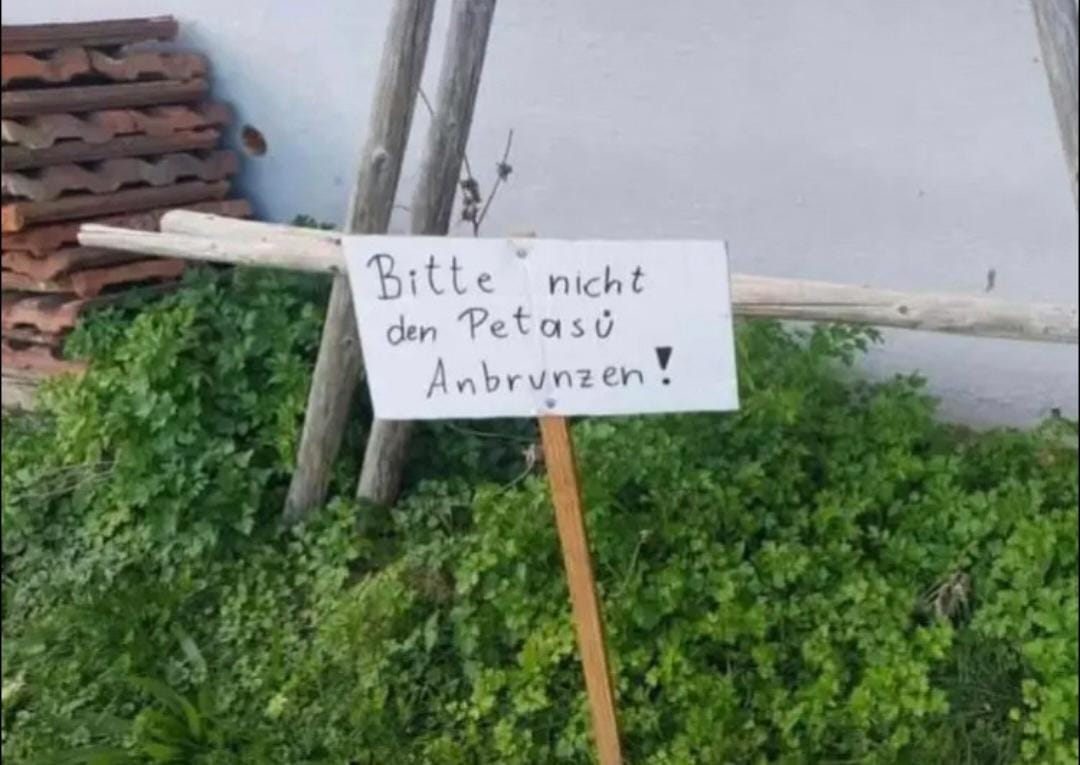 Bitte nicht
den Petasü
Anbrunzen!